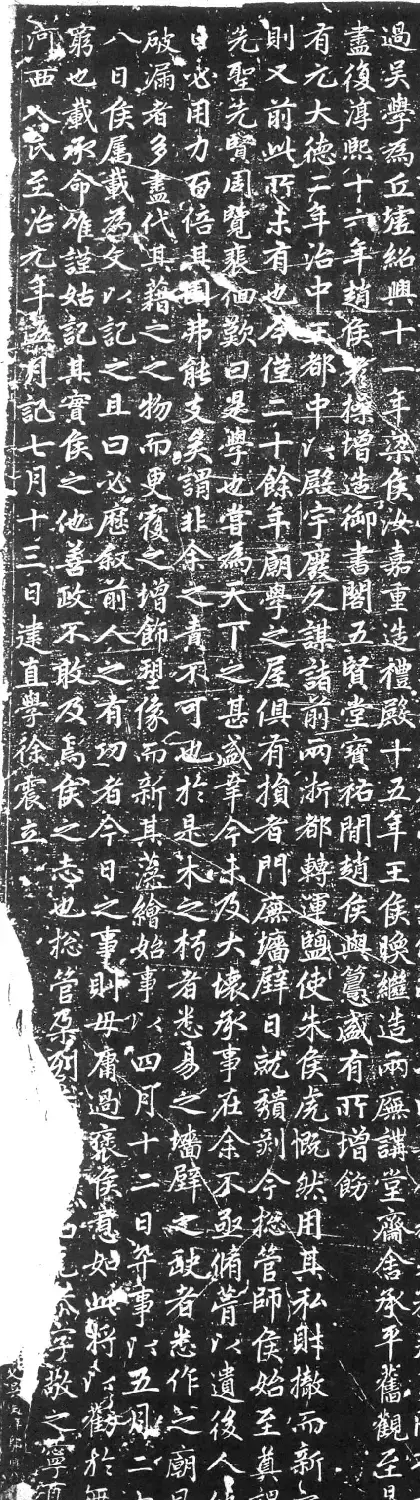 過吳學為丘墟紹興十一年梁侯汝嘉重造禮殿十五年王侯㬇繼造兩廡講堂齋舍承平舊觀至是
盡復淳熙十六年趙侯彥操增造御書閣五賢堂寶祐間趙侯與𥲅盛有所增飭
有元大德二年治中王都中以殿宇歲久謀諸前兩浙都轉運鹽使朱侯虎慨然用其私財撤而新
則又前此所未有也今僅二十餘年廟學之屋俱有損者門廡墻壁日就穨剝今捴管師侯始至奠謁
先聖先賢周覽裴佪歎曰是學也嘗為天下之甚盛幸今未及大壞承事在余不亟脩葺以遺後人
日必用力百倍其困弗能支矣謂非余之責不可也於是木之朽者悉易之墻壁之缺者悉作之廟
破漏者多盡代其藉之之物而更覆之增飾塑像而新其藻繪始事以四月十二日卒事以五月二
八日侯属載為文以記之且曰必歷敘前人之有功者今日之事則毋庸過褒侯意如此將以勸於無
窮也載承命惟謹姑記其實侯之他善政不敢及焉侯之志也捴管朵列
字敬之寧
河西人氏至治元年五月記七月十三日建直學徐震立